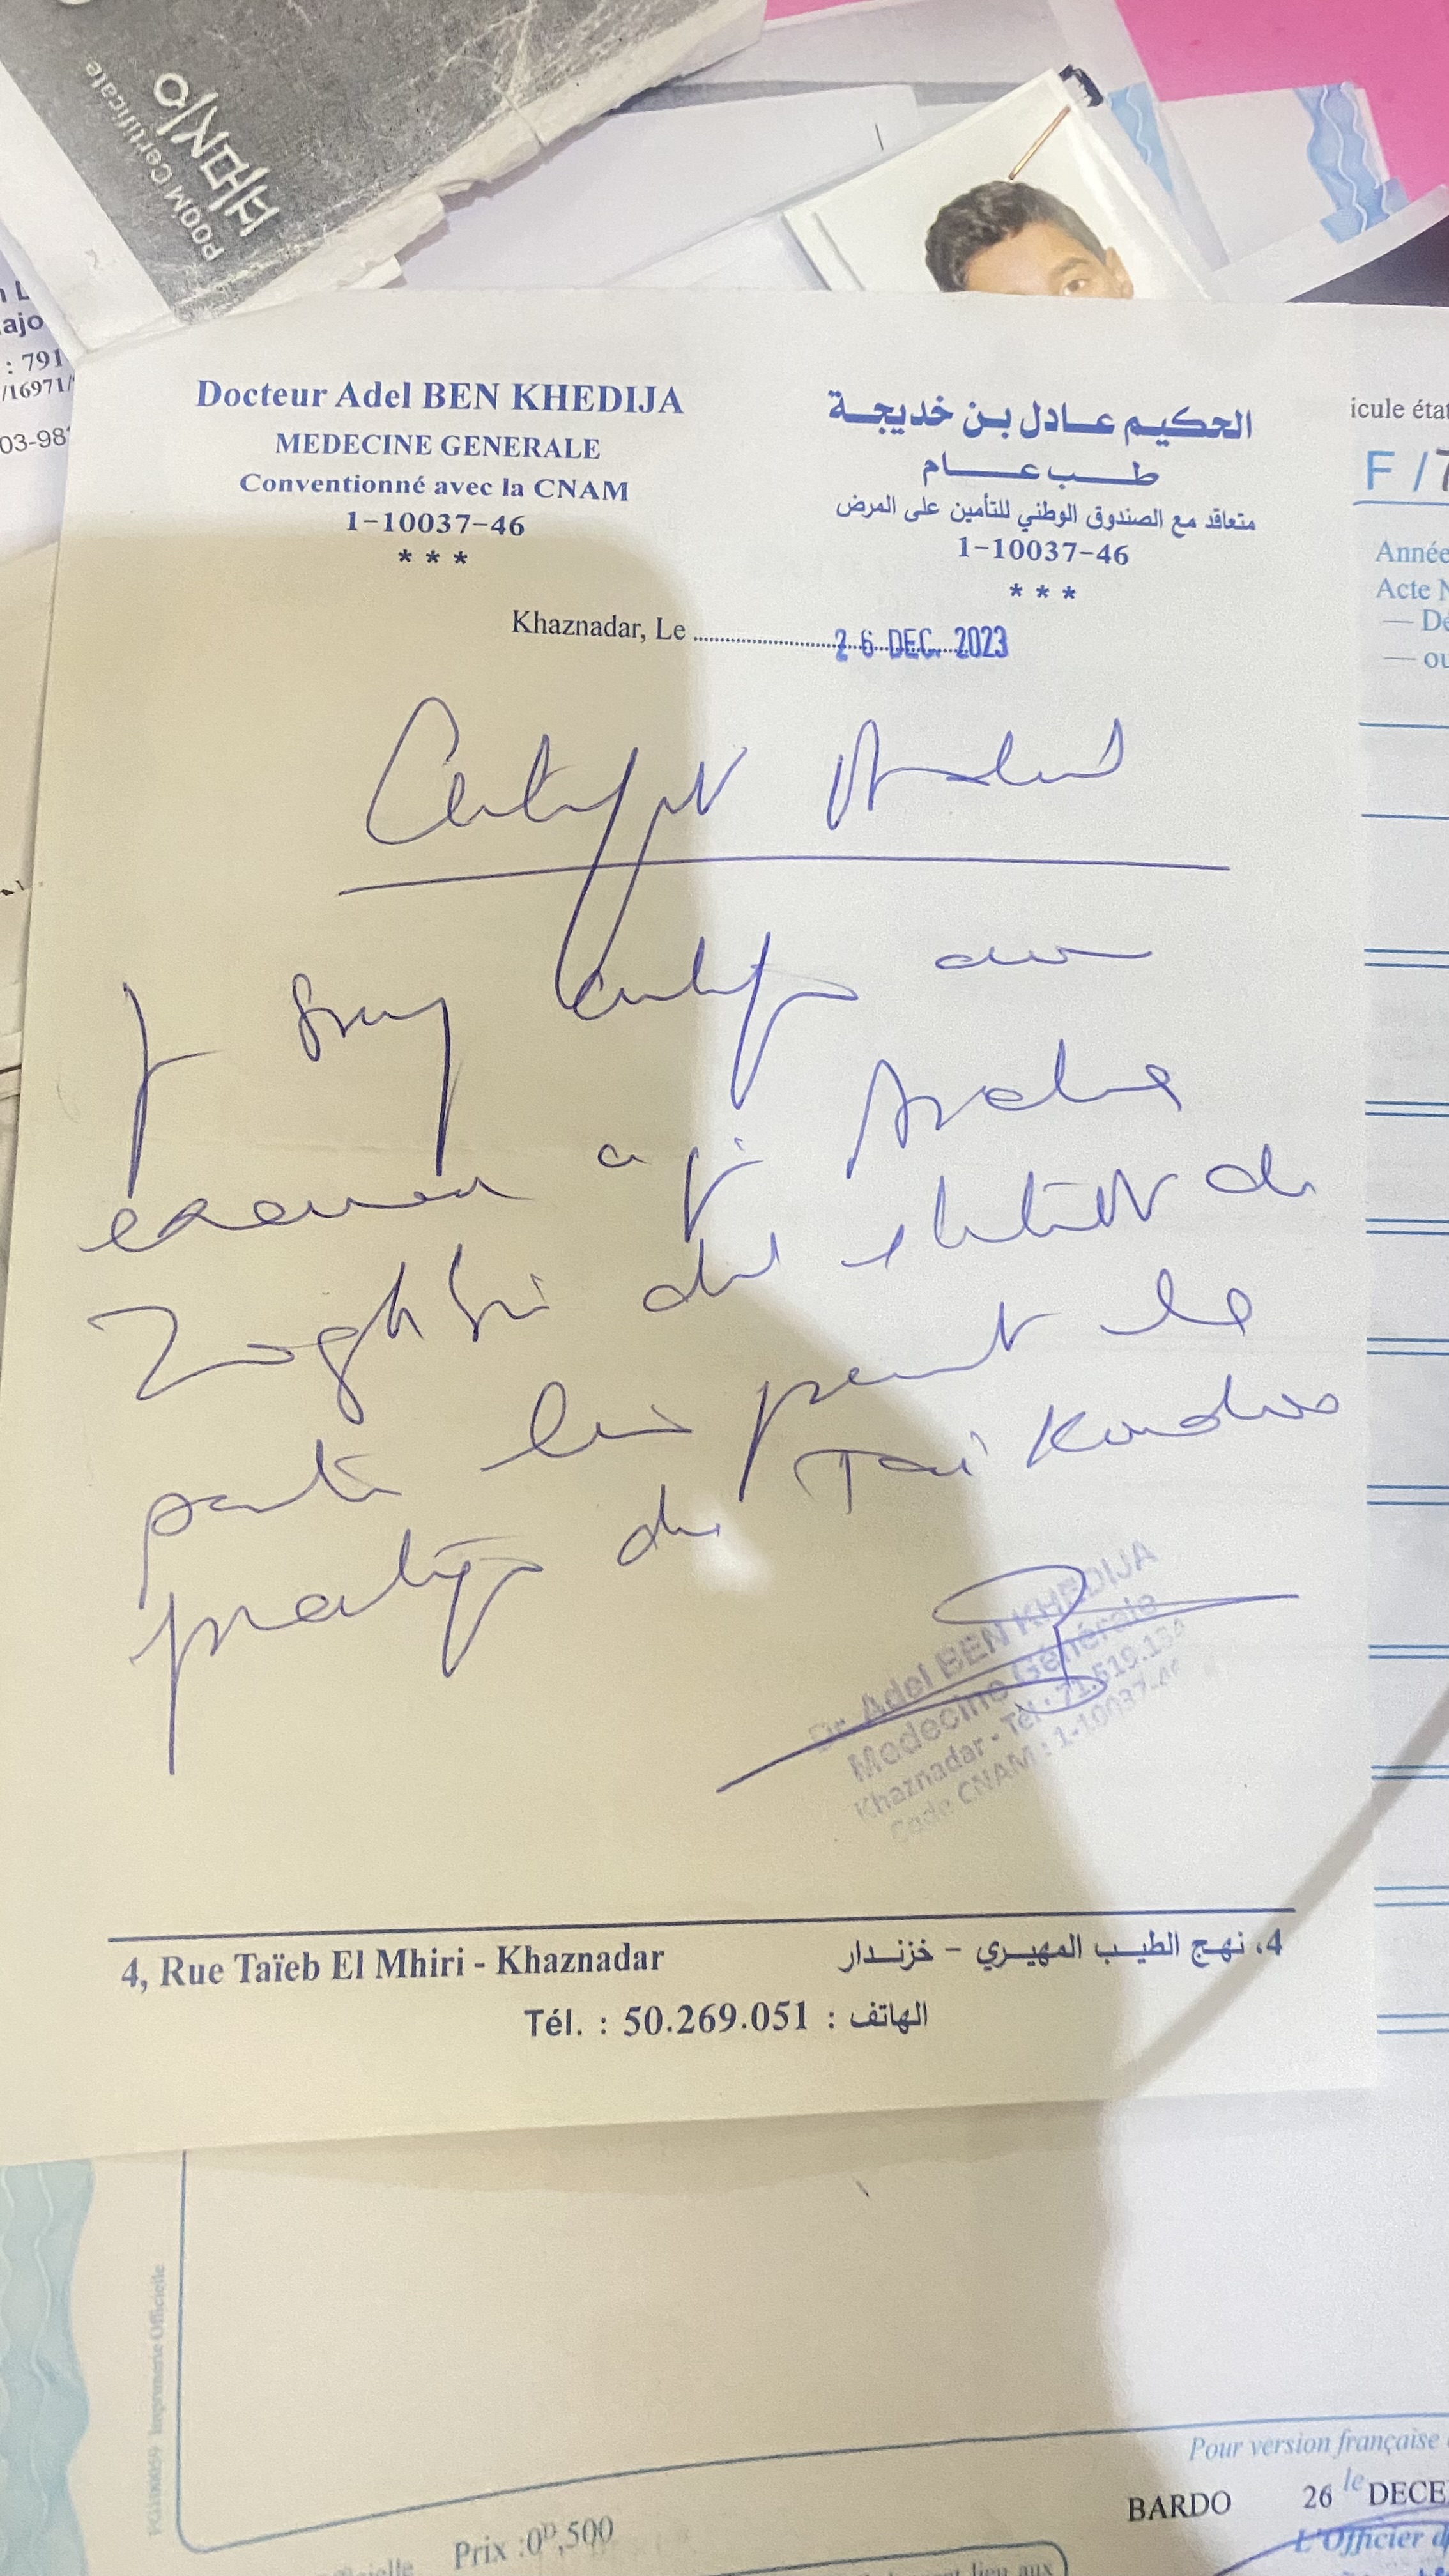 POOM Certificale
ajo
: 791
/16971/
03-98
Docteur Adel BEN KHEDIJA
MEDECINE GENERALE
Conventionné avec la CNAM
1-10037-46
* * *
الحكيم عادل بن خديجة
طب عام
متعاقد مع الصندوق الوطني للتأمين على المرض
1-10037-46
* * *
Khaznadar, Le 26 DEC. 2023
Certificat Médical
Je soussigné certifie avoir
examiné ce jr
Zoghbi dont l'état de
santé lui permet la
pratique du Taikondo
Dr. Adel BEN KHEDIJA
Medecine Générale
Khaznadar - Tél : 71.519.134
Code CNAM : 1-10037-46
4, Rue Taïeb El Mhiri - Khaznadar
4، نهج الطيب المهيري - خزندار
Tél. : 50.269.051 : الهاتف
icule éta
F/7
Année
Acte N
— De
— ou
Imprimerie Officielle
Prix :0D,500
Pour version française
BARDO 26 le DECE
L'Officier d
lieu aux